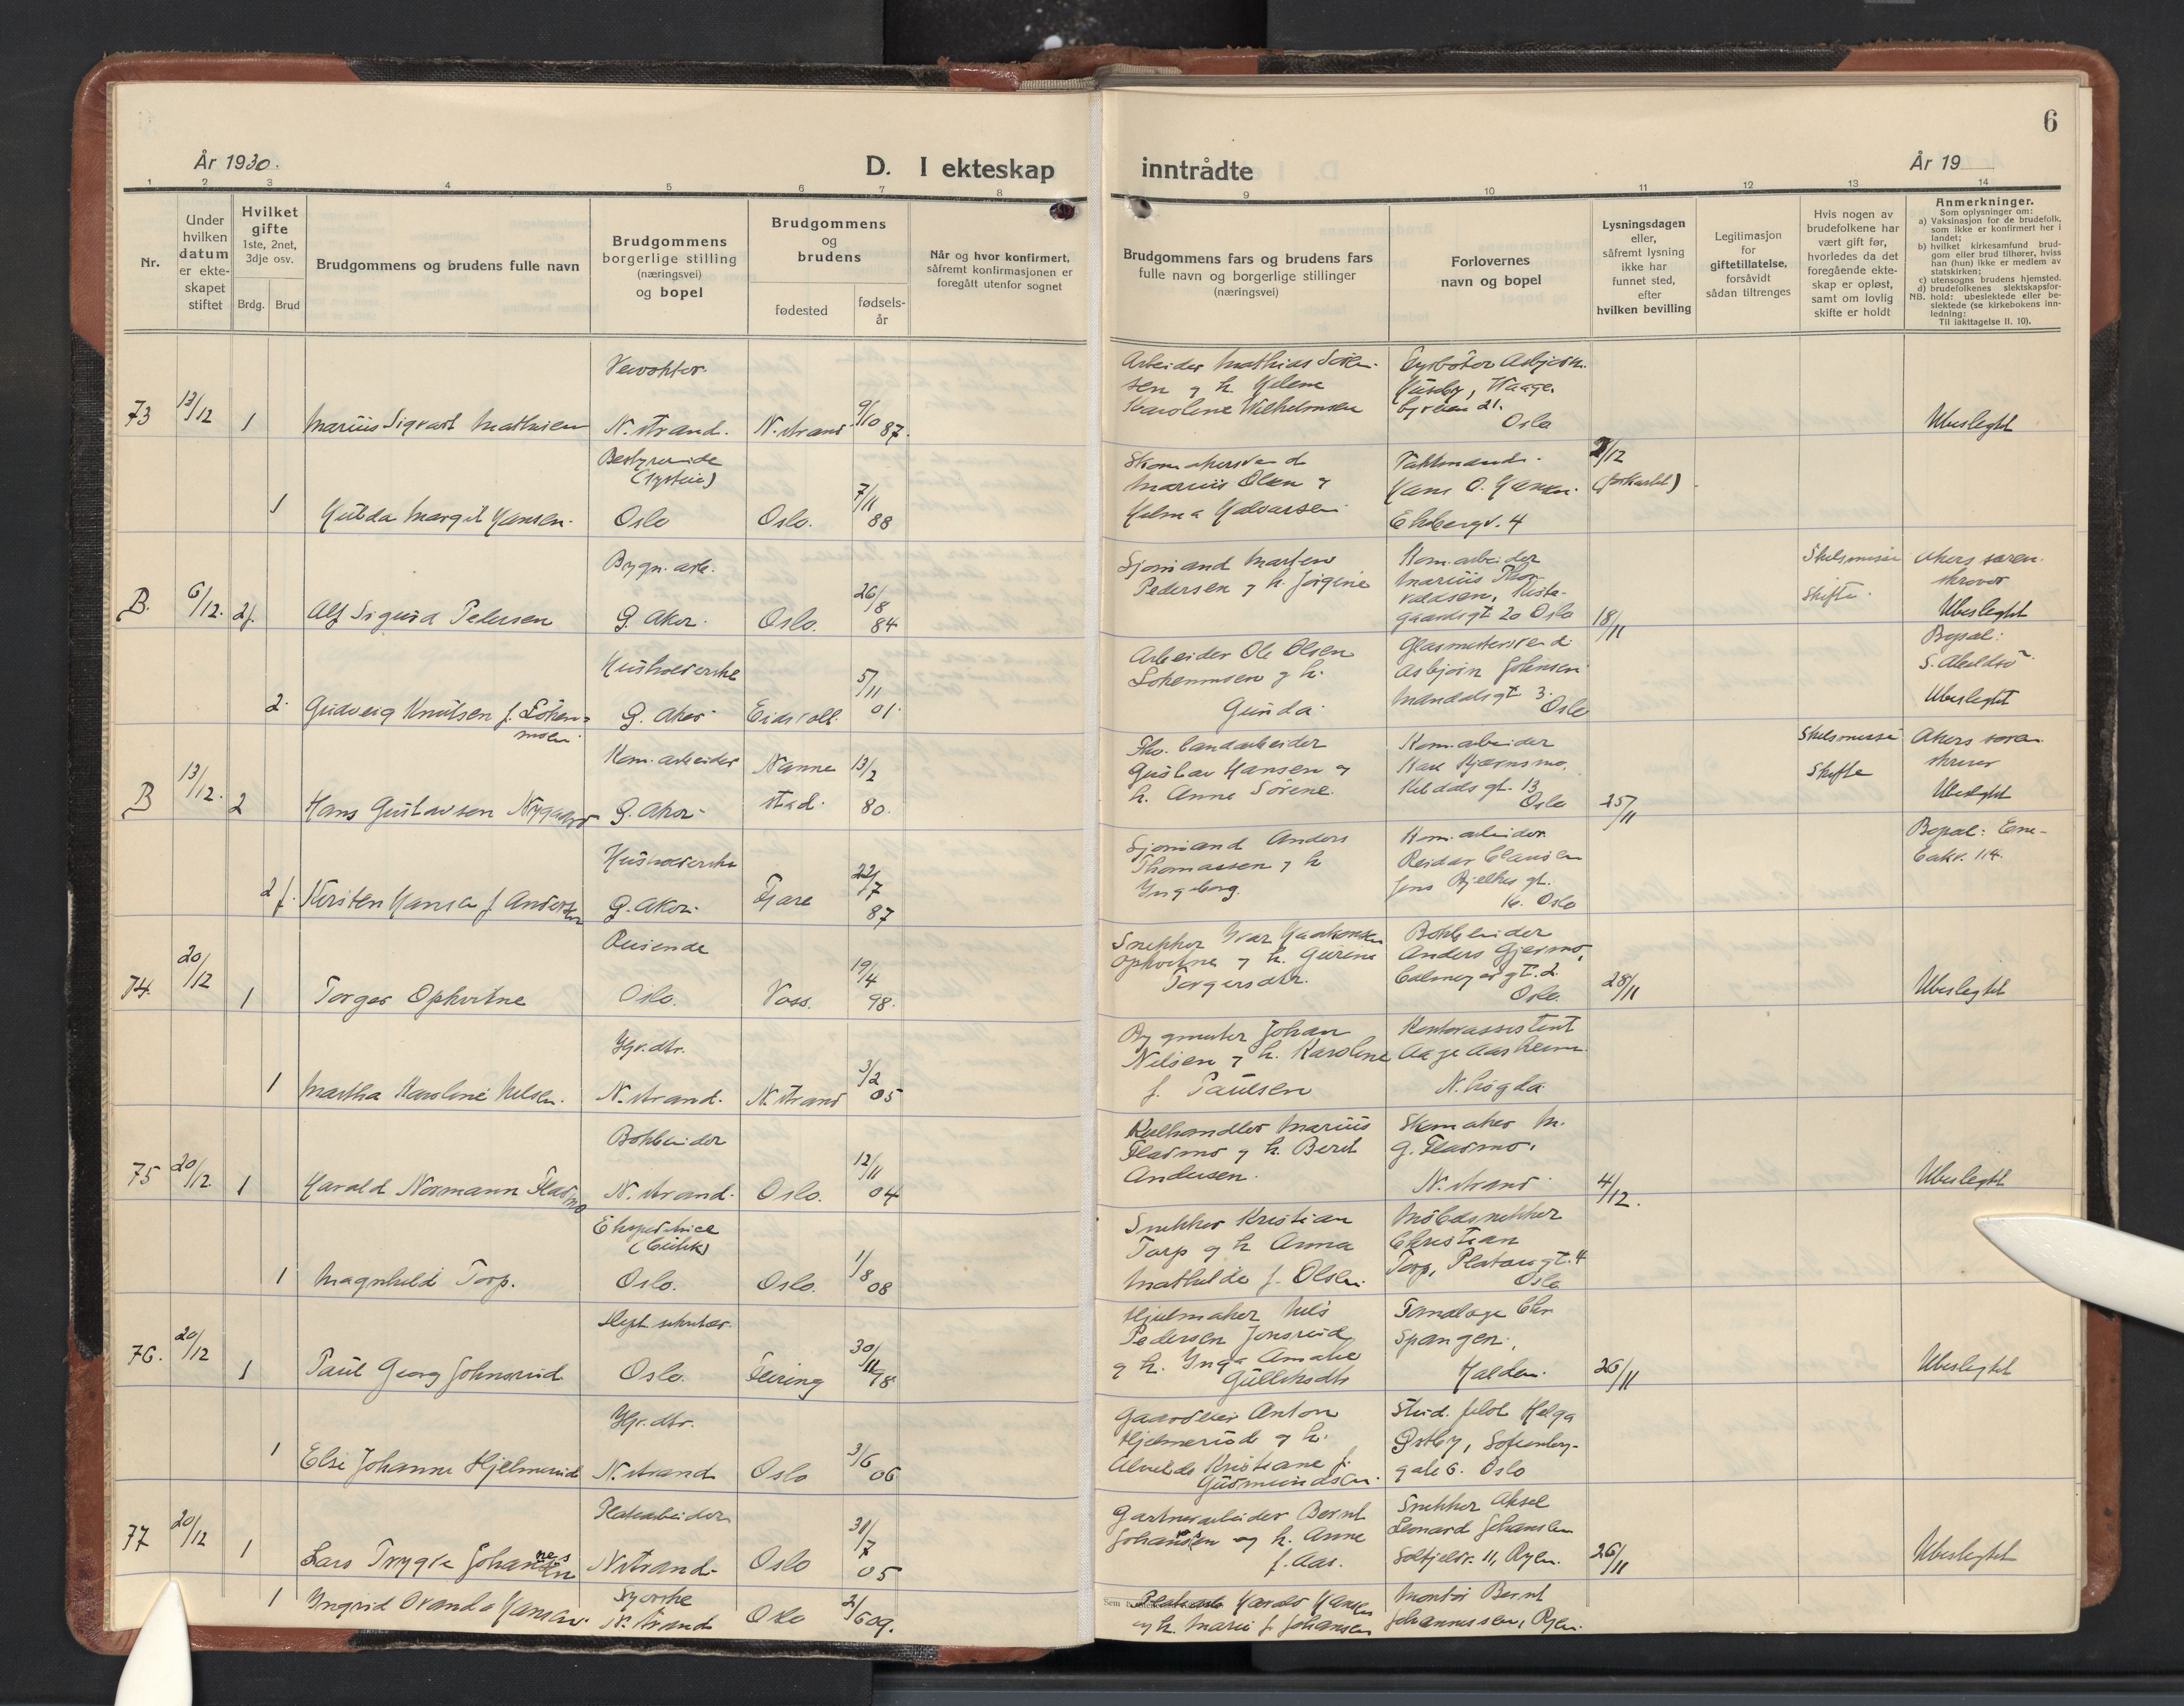 År 1930.
D. I ekteskap
inntrådte
År 19
6
1 2 3 4 5 6 7 8 9 10 11 12 13 14
Nr.
Under hvilken datum er ekteskapet stiftet
Hvilket gifte 1ste, 2net, 3dje osv.
Brdg. Brud
Brudgommens og brudens fulle navn
Brudgommens borgerlige stilling (næringsvei) og bopel
Brudgommens og brudens
fødested
fødselsår
Når og hvor konfirmert, såfremt konfirmasjonen er foregått utenfor sognet
Brudgommens fars og brudens fars fulle navn og borgerlige stillinger (næringsvei)
Forlovernes navn og bopel
Lysningsdagen eller, såfremt lysning ikke har funnet sted, efter hvilken bevilling
Legitimasjon for giftetillatelse, forsåvidt sådan tiltrenges
Hvis nogen av brudefolkene har vært gift før, hvorledes da det foregående ekteskap er opløst, samt om lovlig skifte er holdt
Anmerkninger.
Som oplysninger om:
a) Vaksinasjon for de brudefolk, som ikke er konfirmert her i landet;
b) hvilket kirkesamfund brudgom eller brud tilhører, hviss han (hun) ikke er medlem av statskirken;
c) utensogns brudens hjemsted.
d) brudefolkenes slektskapsforhold: ubeslektede eller beslektede (se kirkebokens innledning:
NB.
Til iakttagelse II. 10).
73 13/12 1 Marius Sigvart Mathisen
N. strand. N. strand 9/10 87.
Arbeider Mathias Sørensen og h. Helene
Karoline Wilhelmsen
Asbjørn
Oslo
Ubeslegtet
1 Hulda Margit Hansen.
Bestyrerinde
Oslo Oslo. 7/11 88
Marius Olsen og
Helma Halvorsen
Hans O. Hansen.
Ekebergv. 4
/12
B. 6/12. 2f. Alf Sigurd Pedersen
Bygn. arb.
Ø. Aker. Oslo. 26/8 84
Sjømand Marten
Pedersen og h. Jørgine
Kom. arbeider
Marius Thorvaldsen,
20 Oslo
18/11
Skilsmisse
Skifte.
Akers sorenskriver
Ubeslegtet
2. Gudveig Knutsen f.
Husholderske
Ø. Aker Eidsvoll. 5/11 01.
Arbeider Ole Olsen
og h.
Gunda
Glasmestersvend
Asbjørn Johnsen
Mandalsgt. 3.
Oslo
Bopæl:
Ubeslegtet
B 13/12. 2 Hans Gustavsen Nygaard
Kom. arbeider
Ø. Aker Nannestad. 13/2 80.
Fhv. landarbeider
Gustav Hansen og
h. Anne Sørine.
Kom. arbeider
Kare Bjærnsmo,
13
Oslo
25/11
Skilsmisse
Skifte
Akers sorenskriver
Ubeslegtet
2 f. Kirsten Hansen f. Andersen
Husholderske
Ø. Aker. Fjære 22/7 87
Sjømand Anders
Thomassen og h
Ingeborg.
Kom. arbeider
Reidar Clausen
Jens Bjelkes gt.
16. Oslo
Bopæl: Enebakv. 114.
74. 20/12 1 Torger Ophvitne
Reisende
Oslo. Voss. 19/4 98.
Snekker Ivar Haakonsen
Ophvitne og h. Gurine
Torgersdtr.
Bokbinder
Anders Gjesmo,
Calmeyersgt. 2.
Oslo.
28/11
Ubeslegtet
1 Martha Karoline Nilsen.
N. strand. N. strand 3/2 05
Bygmester Johan
Nilsen og h. Karoline
f. Paulsen
Kontorassistent
Aage Aasheim
N. høgda
75 20/12 1 Harald Normann Fladmo
Bokbinder
N. strand. Oslo. 12/11 04
Kulhandler Marius
Fladmo og h. Berit
Andersen.
Skomaker M.
G. Fladmo,
N. strand
4/12.
Ubeslegtet
1 Magnhild Torp.
Ekspeditrice
(butik)
Oslo. Oslo. 1/8 08
Snekker Kristian
Torp og h Anna
Mathilde f. Olsen.
Møbelsnekker
Christian
Torp, Platousgt. 4
Oslo
76. 20/12 1 Paul Georg Johnsrud
Oslo. Feiring 30/11 98
Hjulmaker Nils
Pedersen Jonsrud
og h. Inga Amalie
Gulliksdtr
Tandlæge Chr
Spangen,
Halden.
26/11
Ubeslegtet
1 Else Johanne Hjelmerud
N. strand Oslo 3/6 06
Gaardeier Anton
Hjelmerud og h.
Alvilde Kristiane f.
Gudmundsen.
Stud. filol Helga
Østby, Sofienberggate 6. Oslo
77 20/12 1 Lars Trygve Johannessen
Platearbeider
N. strand. Oslo 31/7 05
Gartnerarbeider Bernt
Johansen og h. Anne
f. Aas.
Snekker Aksel
Leonard Johansen
Solfjeldv. 11, Ryen.
26/11
Ubeslegtet
1 Ingrid Hansen.
Syerske
N. strand Oslo 2/6 09.
Harald Hansen
og h. Marie f. Johansen
Montør Bernt
Johannessen, Ryen.